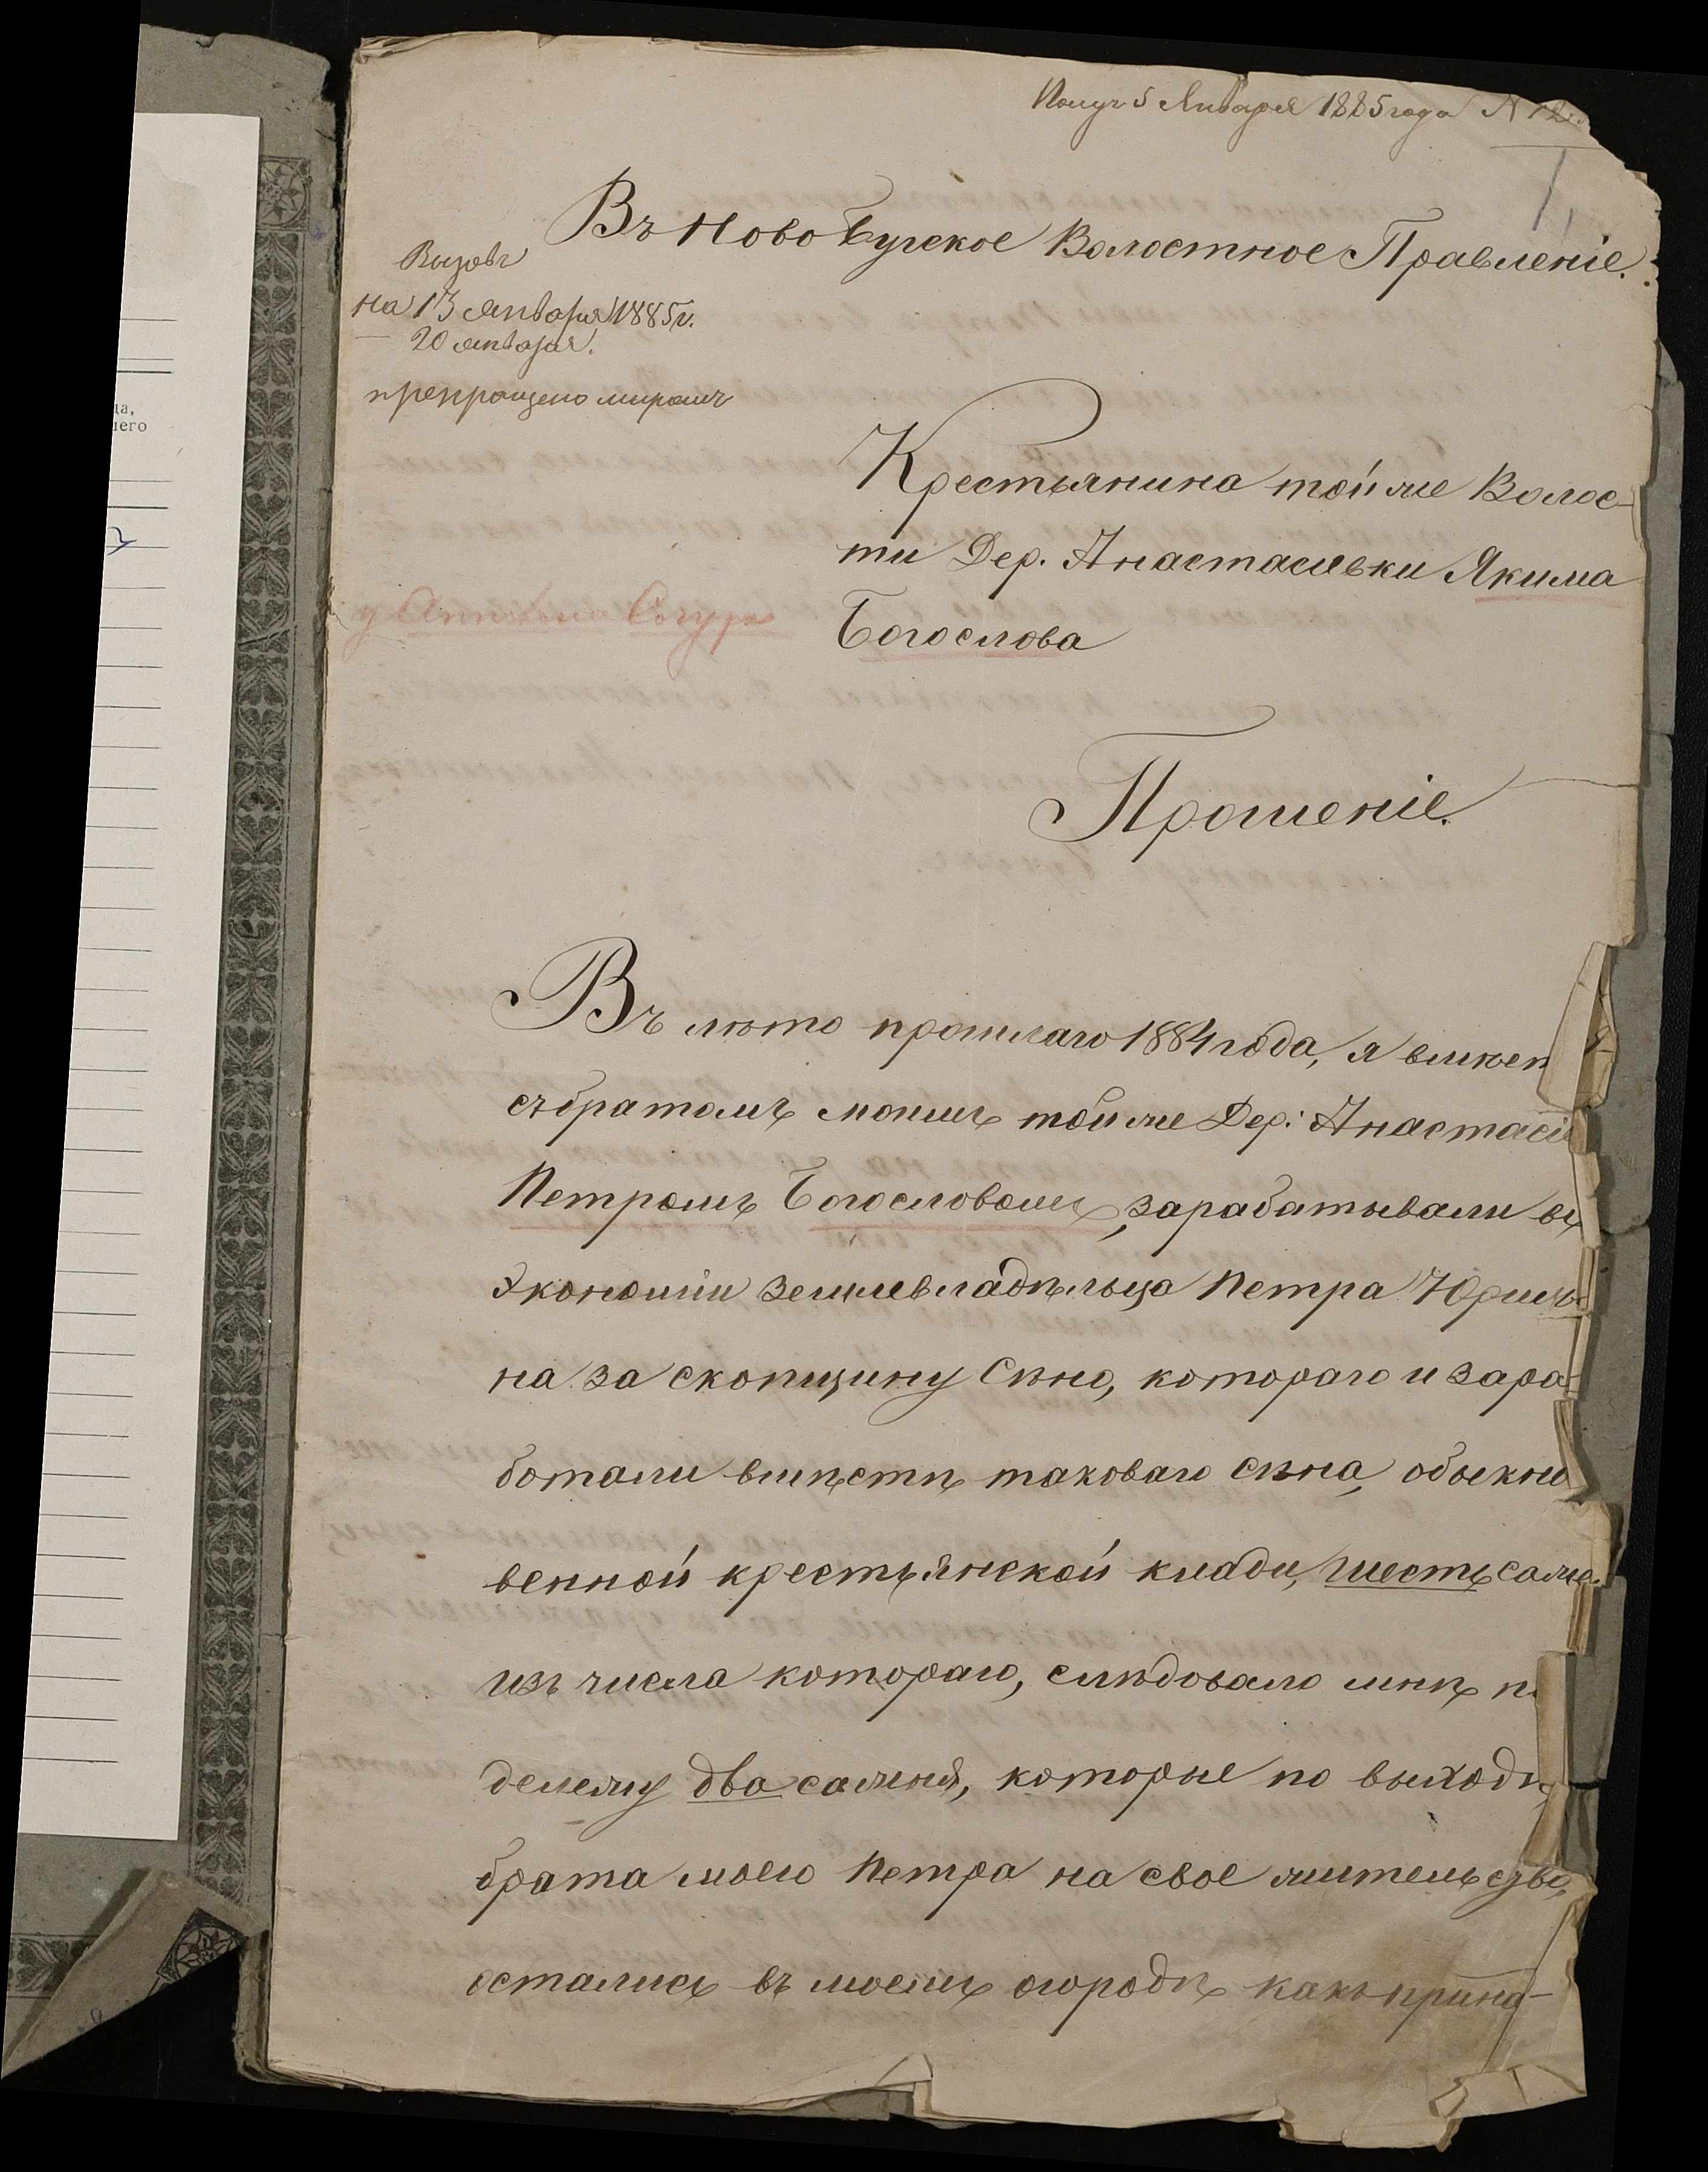 Получ 5 Января 1885 года № 12
1
Въ Ново Бугское Волостное Правленіе.
Вызовъ
на 13 Января 1885 г.
— 20 января.
прекращено миромъ
Крестьянина той же Волос-
ти Дер. Анастасіевки Якима
Богослова
Прошеніе.
Въ лѣто прошлаго 1884 года, я вмѣст
съ братомъ моимъ той же Дер: Анастасіе
Петромъ Богословомъ, зарабатывали въ
Экономіи землевладѣльца Петра Юрицы-
на за скопщину Сѣно, котораго и зара-
ботали вмѣстѣ таковаго сѣна, обыкно
венной крестьянской клади, шесть сажн.
изъ числа котораго, слѣдовало мнѣ по
дележу два сажня, которые по выходѣ
брата моего Петра на свое жительство,
остались въ моемъ огородѣ какъ прина-
ца,
него